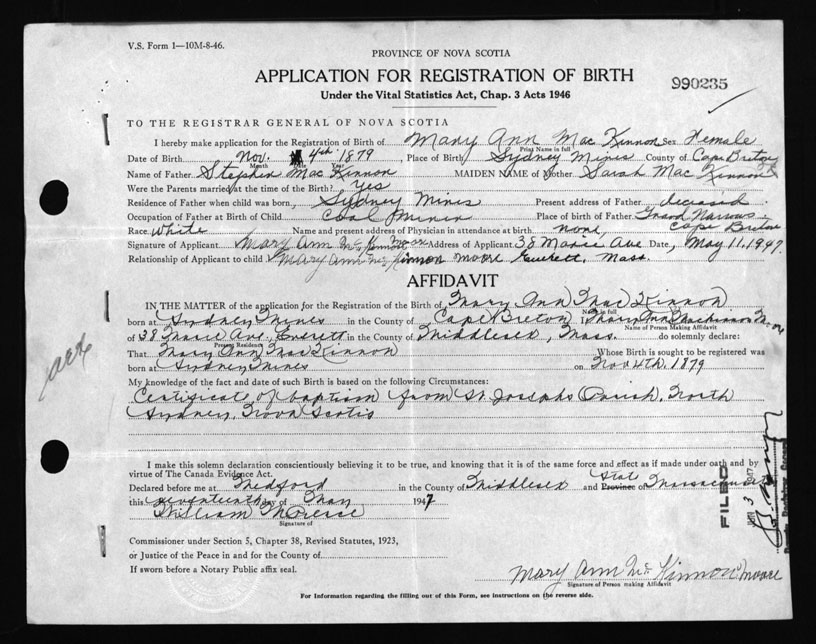 V.S. Form 1—10M-8-46.
PROVINCE OF NOVA SCOTIA
APPLICATION FOR REGISTRATION OF BIRTH
990235
Under the Vital Statistics Act, Chap. 3 Acts 1946
TO THE REGISTRAR GENERAL OF NOVA SCOTIA
I hereby make application for the Registration of Birth of Mary Ann Mac Kinnon Sex Female
Print Name in full
Date of Birth Nov. 4th 1879, Place of Birth Sydney Mines County of Cape Breton
Month Date Year
Name of Father Stephen Mac Kinnon MAIDEN NAME of Mother Sarah Mac Kinnon
Were the Parents married at the time of the Birth? Yes
Residence of Father when child was born, Sydney Mines Present address of Father, deceased
Occupation of Father at Birth of Child Coal Miner Place of birth of Father Grand Narrows
Race White Name and present address of Physician in attendance at birth none, Cape Breton
Signature of Applicant Mary Ann Mc Kinnon Moore Address of Applicant 38 Marie Ave Date, May 11, 1947.
Relationship of Applicant to child Mary Ann Mc Kinnon Moore Everett, Mass.
AFFIDAVIT
IN THE MATTER of the application for the Registration of the Birth of Mary Ann Mac Kinnon
Name in full
born at Sydney Mines in the County of Cape Breton I, Mary Ann Mackinnon Moore
Name of Person Making Affidavit
of 38 Marie Ave., Everett in the County of Middlesex, Mass. do solemnly declare:
Present Residence
That Mary Ann MacKinnon Whose Birth is sought to be registered was
born at Sydney Mines on Nov 4th, 1879
My knowledge of the fact and date of such Birth is based on the following Circumstances:
Certificate of baptism from St. Josephs Parish, North
Sydney, Nova Scotia
I make this solemn declaration conscientiously believing it to be true, and knowing that it is of the same force and effect as if made under oath and by
virtue of The Canada Evidence Act.
Declared before me at Medford in the County of Middlesex and State Province of Massachusetts
this seventeenth day of May 1947
William
Signature of
Commissioner under Section 5, Chapter 38, Revised Statutes, 1923,
or Justice of the Peace in and for the County of
If sworn before a Notary Public affix seal.
Mary Ann Mc Kinnon Moore
Signature of Person making Affidavit
For Information regarding the filling out of this Form, see instructions on the reverse side.
FILED